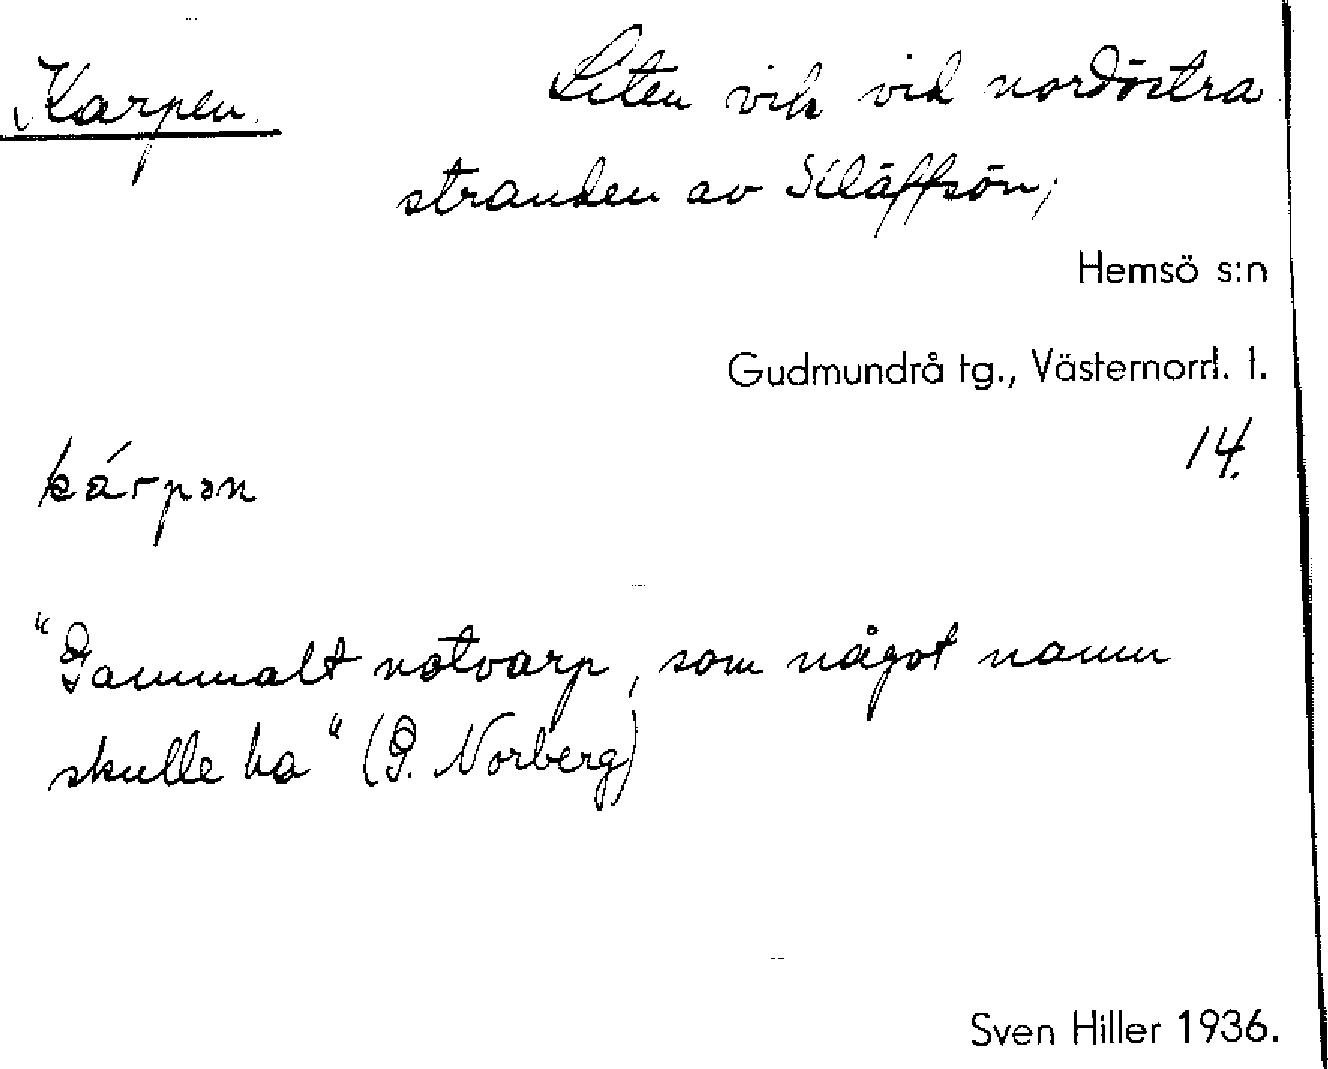 Karpen. Liten vik vid nordöstra
stranden av Kläffsön,
Hemsö s:n
Gudmundrå tg., Västernorrl. l.
14.
kárpən
"Gammalt notvarp, som något namn
skulle ha" (P. Norberg)
Sven Hiller 1936.